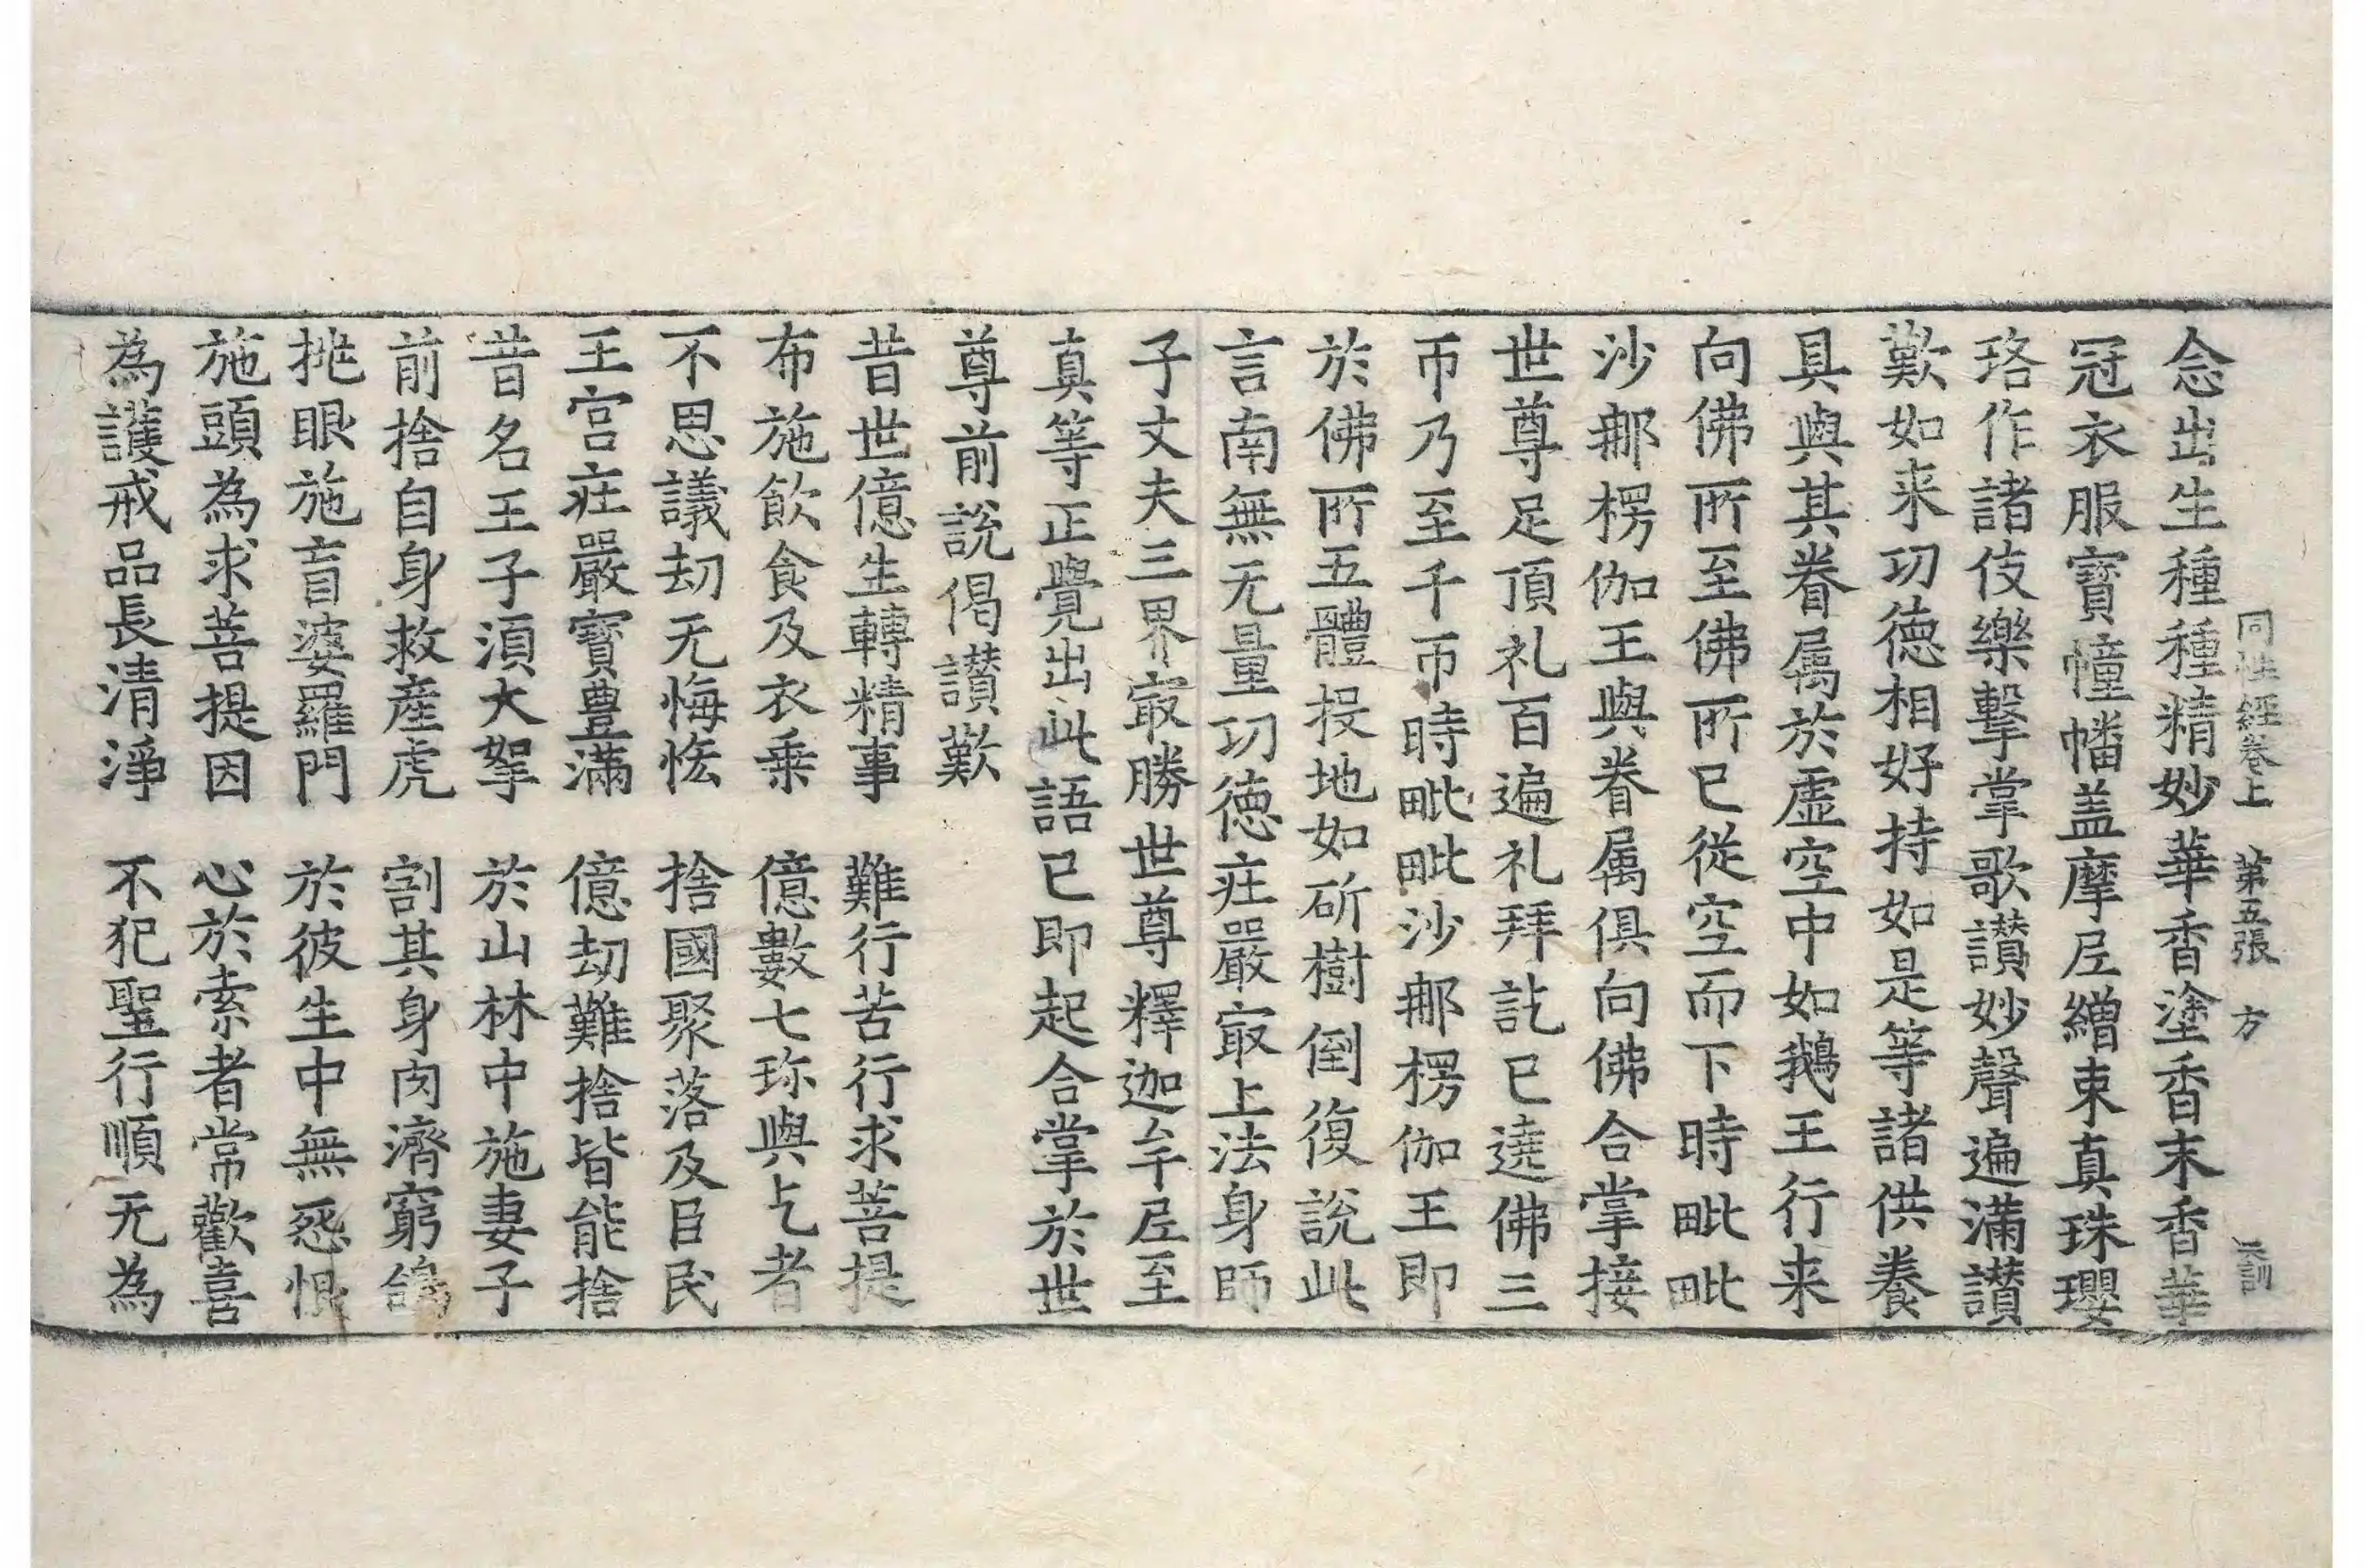 同性經卷上 第五張 方
念出生種種精妙華香塗香末香華
冠衣服寳幢幡盖摩尼繒束真珠瓔
珞作諸伎樂擊掌歌讃妙聲遍滿讃
歎如来功德相好持如是等諸供養
具與其眷属於虛空中如鵝王行来
向佛所至佛所已從空而下時毗毗
沙郍楞伽王與眷属俱向佛合掌接
世尊足頂礼百遍礼拜訖已遶佛三
帀乃至千帀時毗毗沙郍楞伽王即
於佛所五體投地如斫樹倒復說此
言南無无量功德莊嚴㝡上法身師
子丈夫三界㝡勝世尊釋迦牟尼至
真等正覺出此語已即起合掌於世
尊前說偈讃歎
昔世億生轉精事 難行苦行求菩提
布施飮食及衣乗 億數七珎與乞者
不思議劫无悔恡 捨國聚落及臣民
王宫莊嚴寳豊滿 億劫難捨皆能捨
昔名王子湏大拏 於山林中施妻子
前捨自身救產虎 割其身肉濟窮鴿
挑眼施盲婆羅門 於彼生中無惡恨
施頭為求菩提因 心於索者常歡喜
為護戒品長清淨 不犯聖行順无為